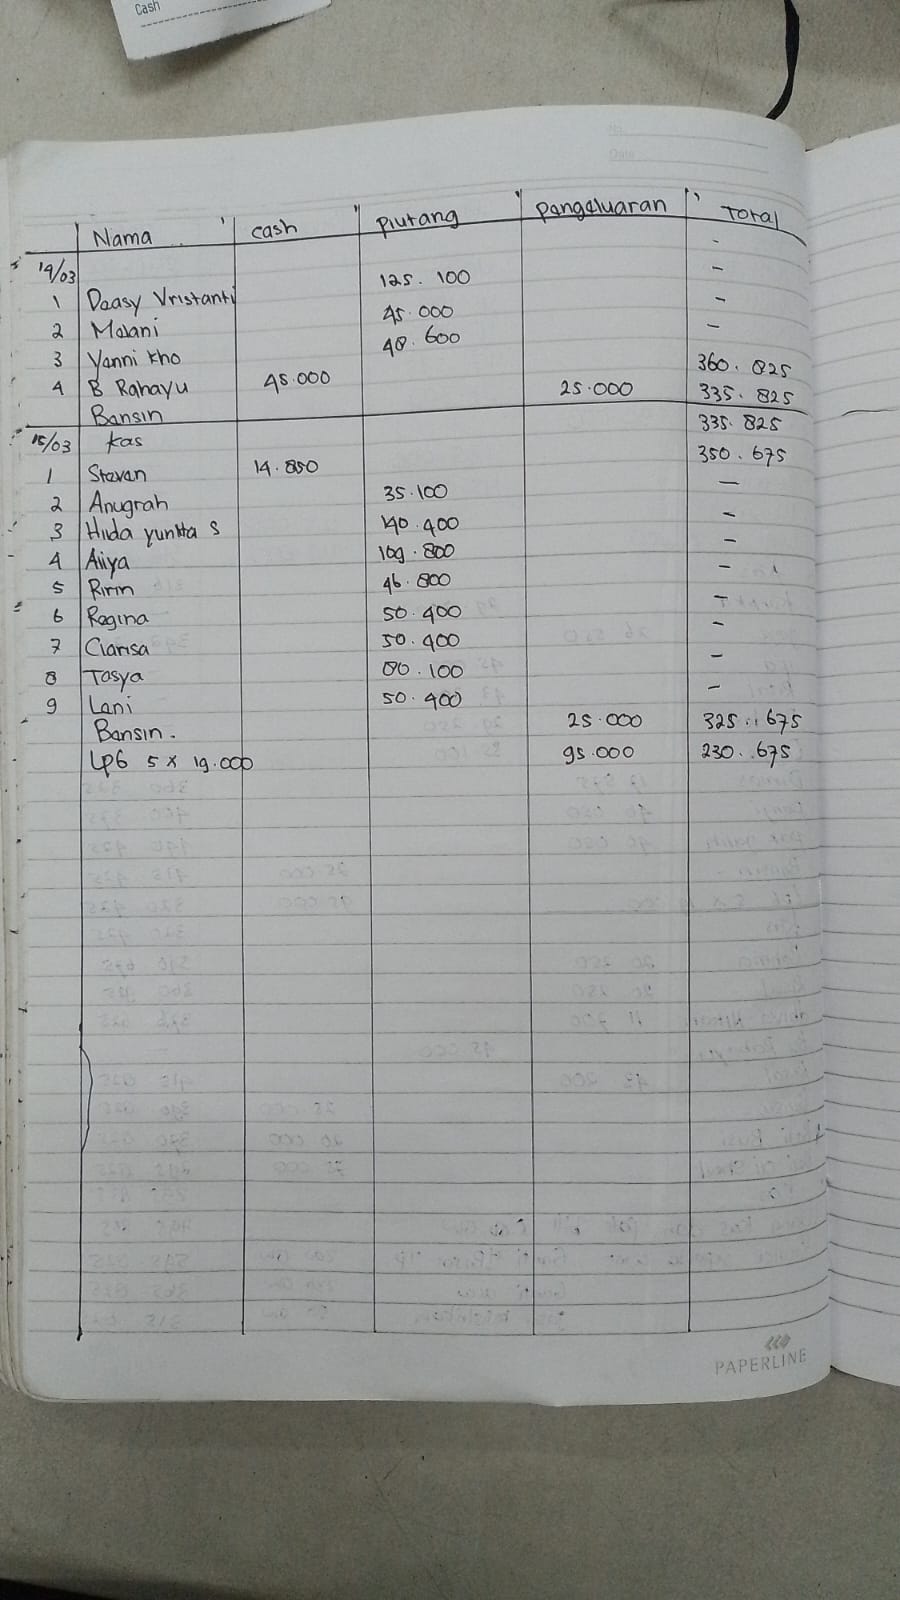 Cash
No.
Date
Nama cash Piutang Pengeluaran Total
14/03 -
1 Deasy Vristanti 125.100 -
2 Melani 45.000 -
3 Yanni kho 48.600 -
4 B Rahayu 45.000 360.825
Bensin 25.000 335.825
15/03 kas 335.825
1 Stevan 14.850 350.675
2 Anugrah 35.100 -
3 Hilda yunitta S 140.400 -
4 Aliya 109.800 -
5 Ririn 46.800 -
6 Regina 50.400 -
7 Clarisa 50.400 -
8 Tasya 80.100 -
9 Leni 50.400 -
Bensin. 25.000 325.675
LPG 5 x 19.000 95.000 230.675
PAPERLINE